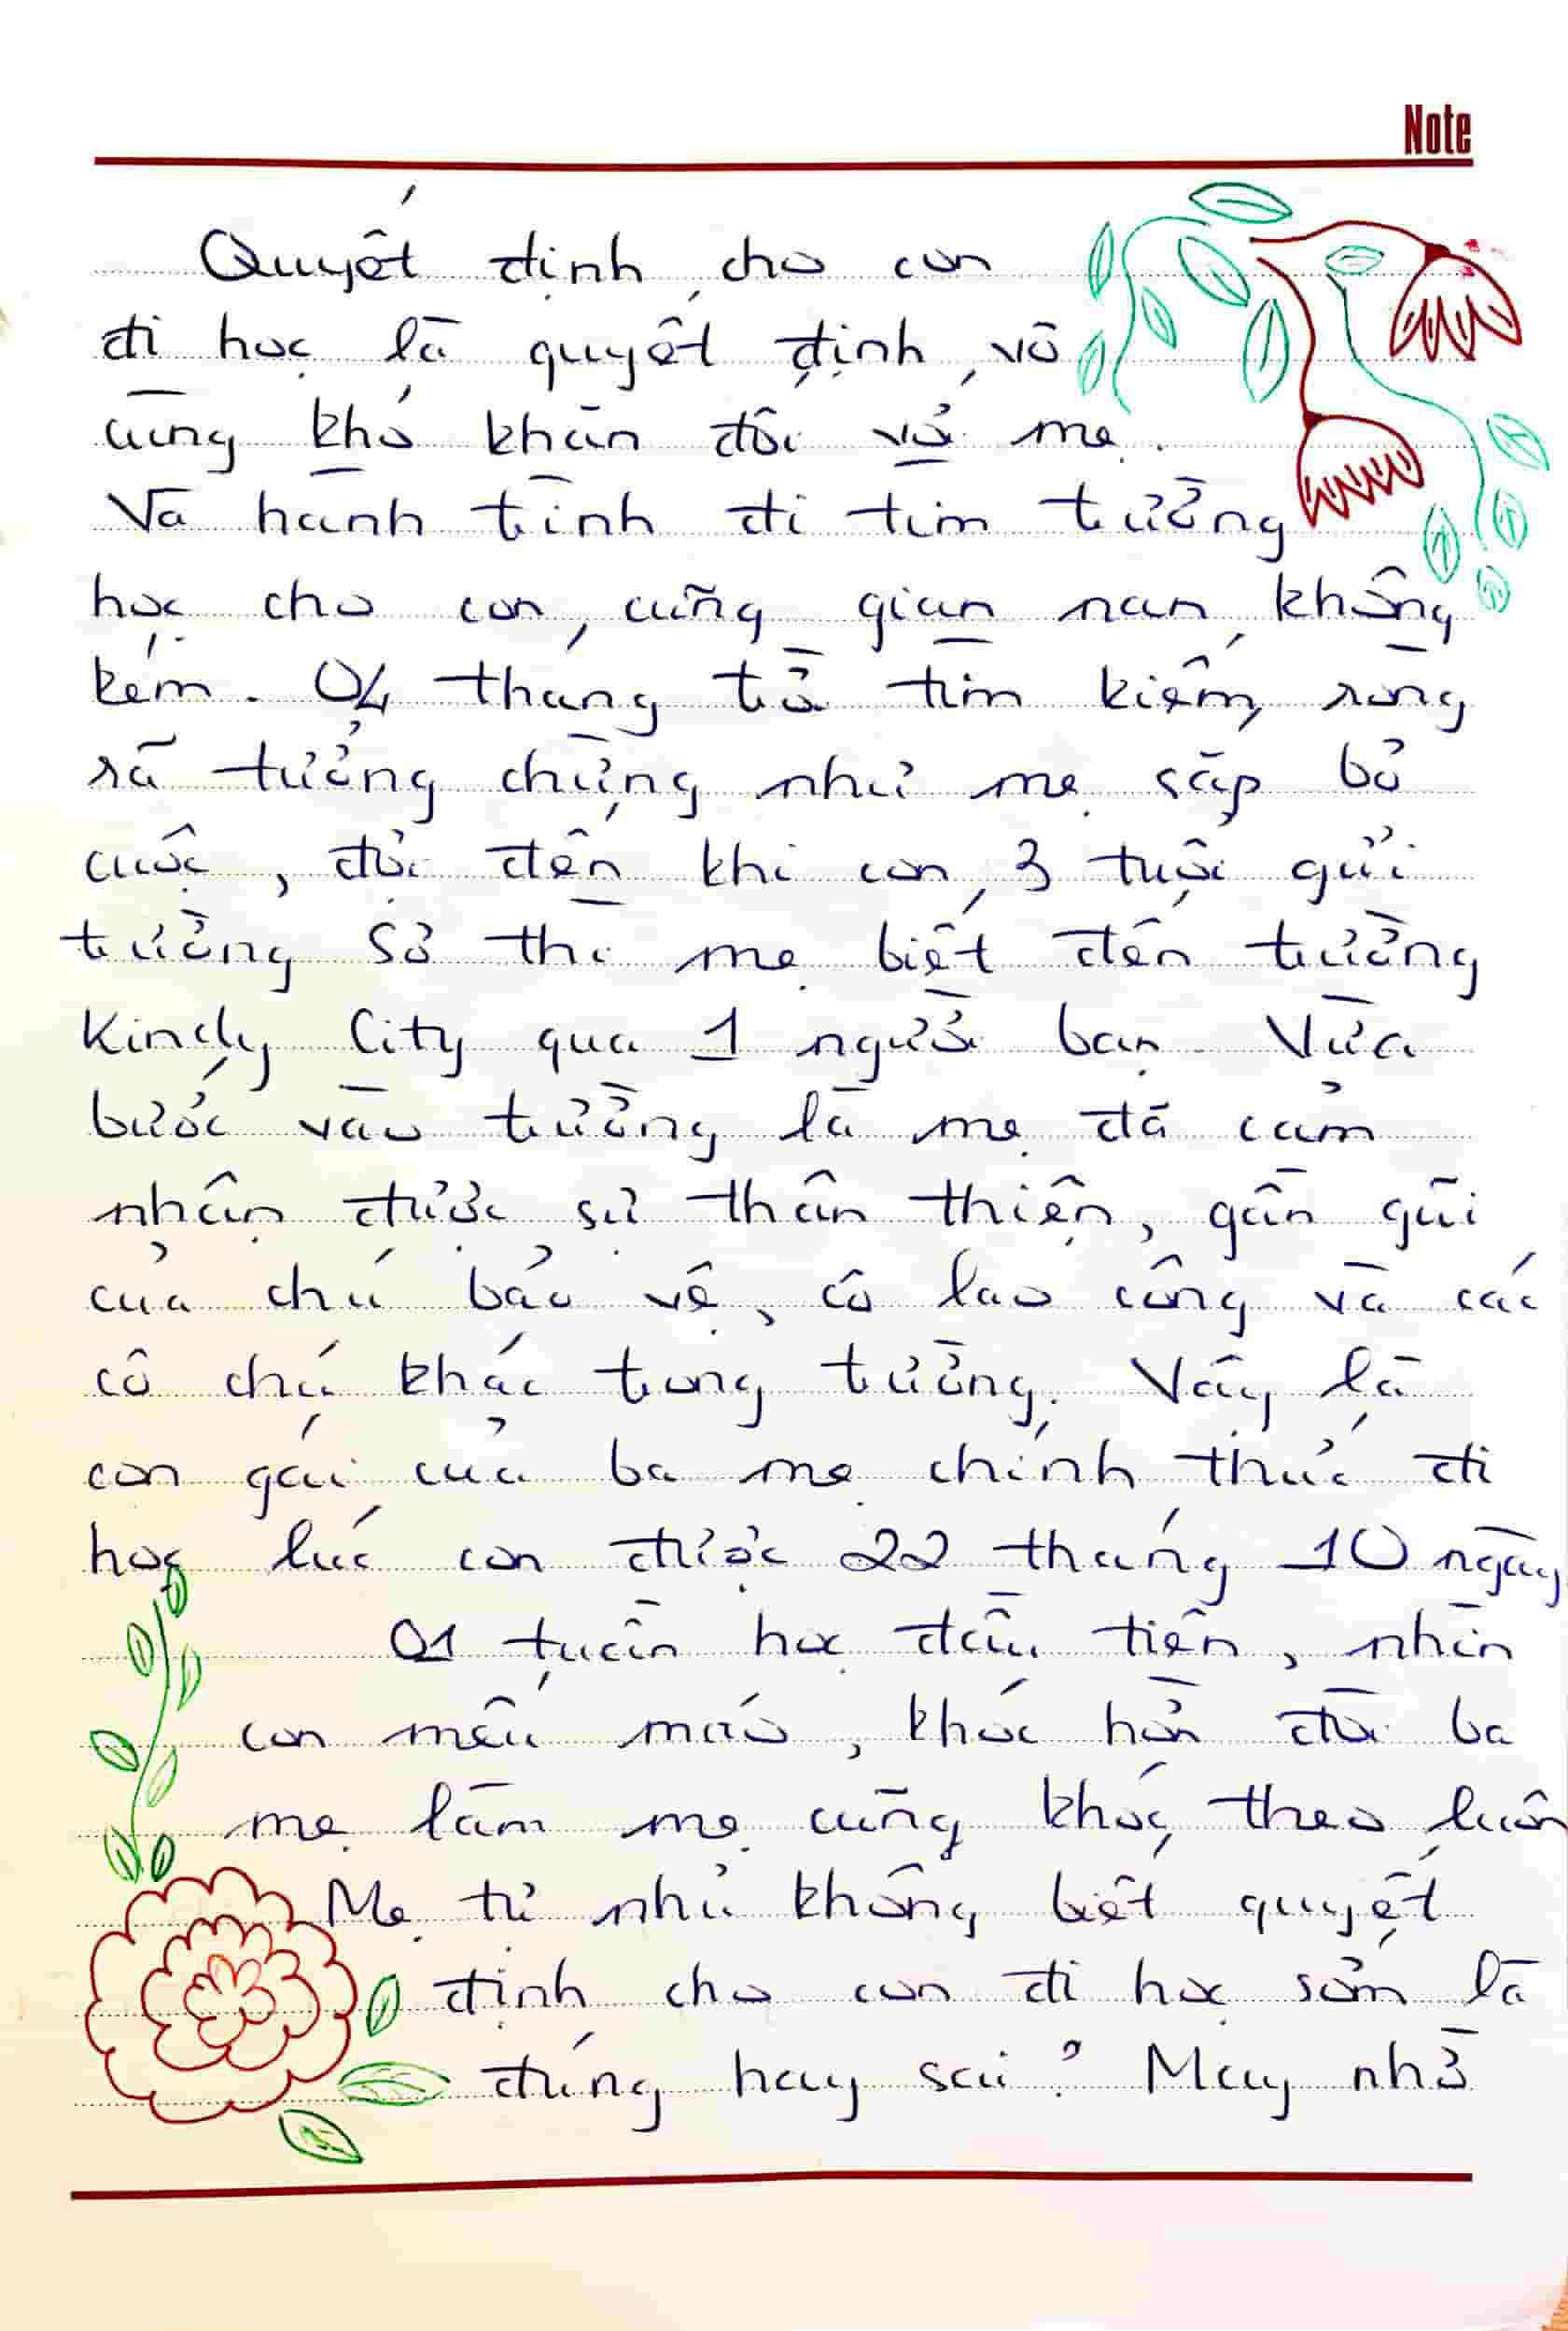 Note
Quyết định cho con
đi học là quyết định vô
cùng khó khăn đối với mẹ.
Và hành trình đi tìm trường
học cho con cũng gian nan không
kém. 04 tháng trời tìm kiếm, ròng
rã tưởng chừng như mẹ sắp bỏ
cuộc, đợi đến khi con 3 tuổi gửi
trường Sở thì mẹ biết đến trường
Kindy City qua 1 người bạn. Vừa
bước vào trường là mẹ đã cảm
nhận được sự thân thiện, gần gũi
của chú bảo vệ, cô lao công và các
cô chú khác trong trường. Vậy là
con gái của ba mẹ chính thức đi
học lúc con được 22 tháng 10 ngày
01 tuần học đầu tiên, nhìn
con mếu máo, khóc hờn đòi ba
mẹ làm mẹ cũng khóc theo luôn
Mẹ tự nhủ không biết quyết
định cho con đi học sớm là
đúng hay sai? May nhờ